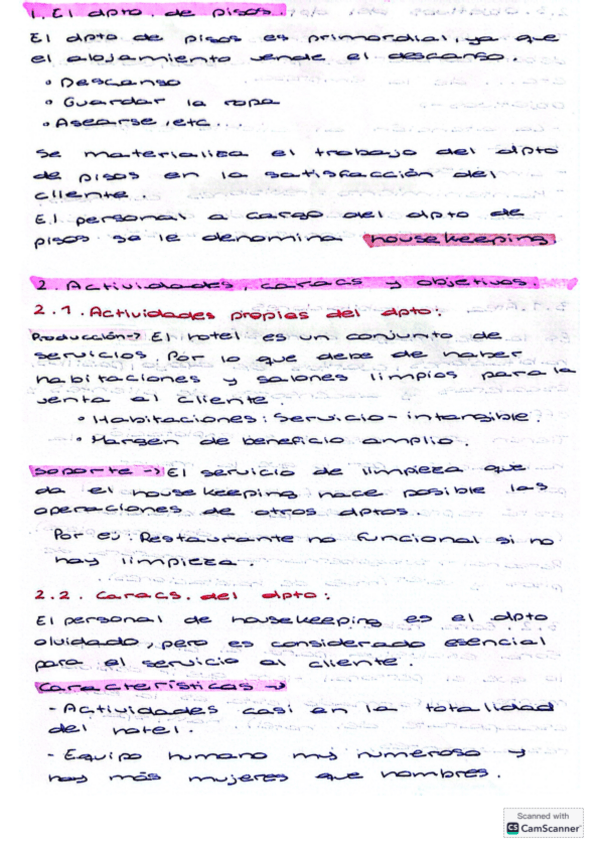 1. El dpto. de pisos.
El dpto de pisos es primordial, ya que
el alojamiento vende el descanso.
• Descanso
• Guardar la ropa
• Asearse, etc...
Se materializa el trabajo del dpto
de pisos en la satisfacción del
cliente.
El personal a cargo del dpto de
pisos se le denomina housekeeping.
2. Actividades, caracs y objetivos.
2.1. Actividades propias del dpto:
Producción → El hotel es un conjunto de
servicios. Por lo que debe de haber
habitaciones y salones limpios para la
venta al cliente.
• Habitaciones: Servicio - intangible.
• Margen de beneficio amplio.
Soporte → El servicio de limpieza que
da el housekeeping hace posible las
operaciones de otros dptos.
Por ej: Restaurante no funcional si no
hay limpieza.
2.2. Caracs. del dpto:
El personal de housekeeping es el dpto
olvidado, pero es considerado esencial
para el servicio al cliente.
Características →
- Actividades casi en la totalidad
del hotel.
- Equipo humano muy numeroso y
hay más mujeres que hombres.
Scanned with
CS CamScanner